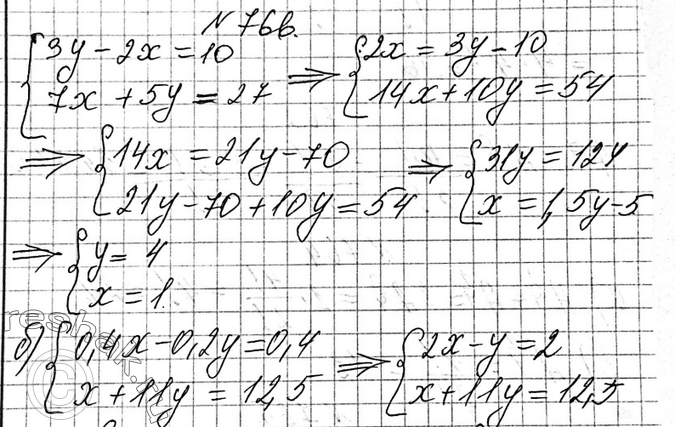 N 76в.
3y - 2x = 10
7x + 5y = 27
=> 2x = 3y - 10
14x + 10y = 54
=> 14x = 21y - 70
21y - 70 + 10y = 54
=> 31y = 124
x = 1,5y - 5
=> y = 4
x = 1.
б) 0,4x - 0,2y = 0,4
x + 11y = 12,5
=> 2x - y = 2
x + 11y = 12,5